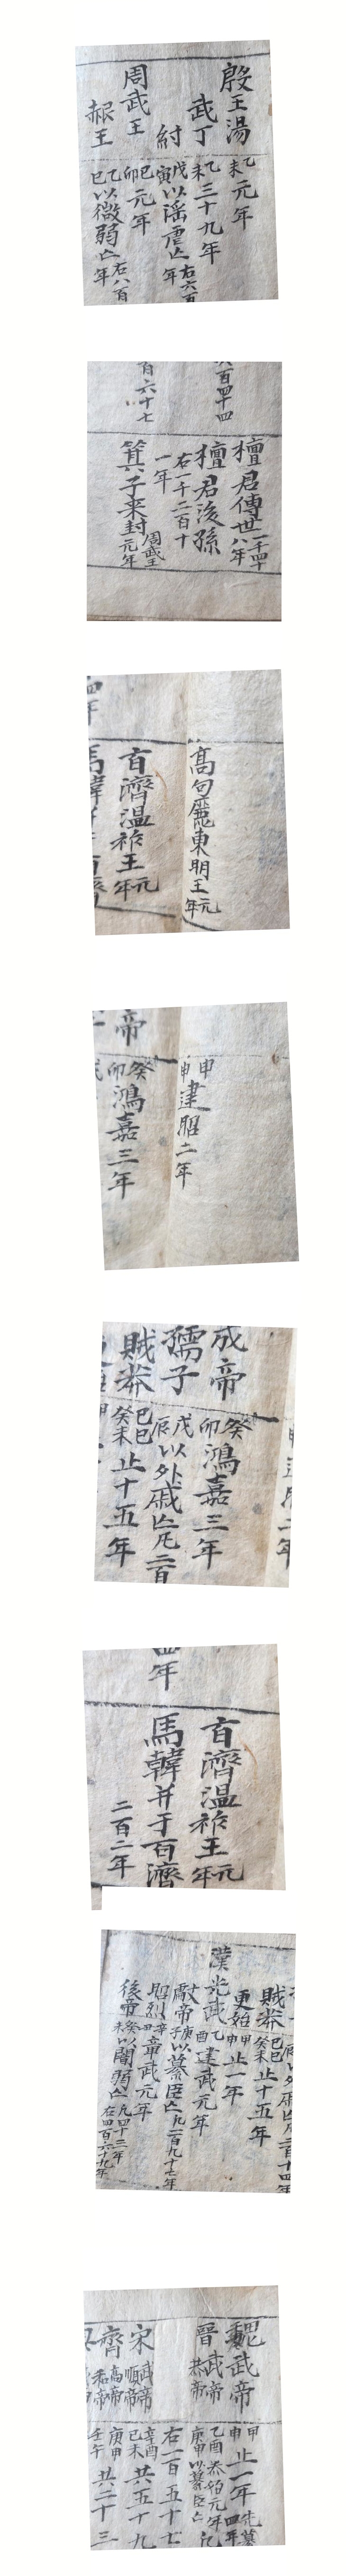 殷王湯 乙未元年
武丁 乙未三十九年
紂 戊寅以淫虐亡 右六百
年
周武王 己卯元年
赧王 乙巳以微弱亡 右八百
年
六百四十四
百六十七
檀君傳世一千四十八年
檀君後孫
右一千二百十
一年
箕子来封周武王元年
高句麗東明王元年
四年
百濟温祚王元年
馬韓并于百濟
甲申建昭二年
帝 癸卯鴻嘉三年
成帝 癸卯鴻嘉三年
孺子 戊辰以外戚亡凡二百
賊莽 己巳癸未止十五年
年
百濟温祚王元年
馬韓并于百濟
二百二年
辰以外戚亡凡二百十四年
賊莽 己巳癸未止十五年
更始 甲申止一年
漢光武 乙酉建武元年
獻帝 庚子以纂臣亡凡一百九十七年
昭烈 辛丑章武元年
後帝 癸未以闇弱亡凡四十三年
右四百六十九年
魏武帝 甲申止一年
晉武帝 乙酉泰始元年
恭帝 庚申以纂臣亡
右一百五十七
宋武帝 辛酉
順帝 己未共五十九
齊高帝 庚申
和帝 壬午共二十三